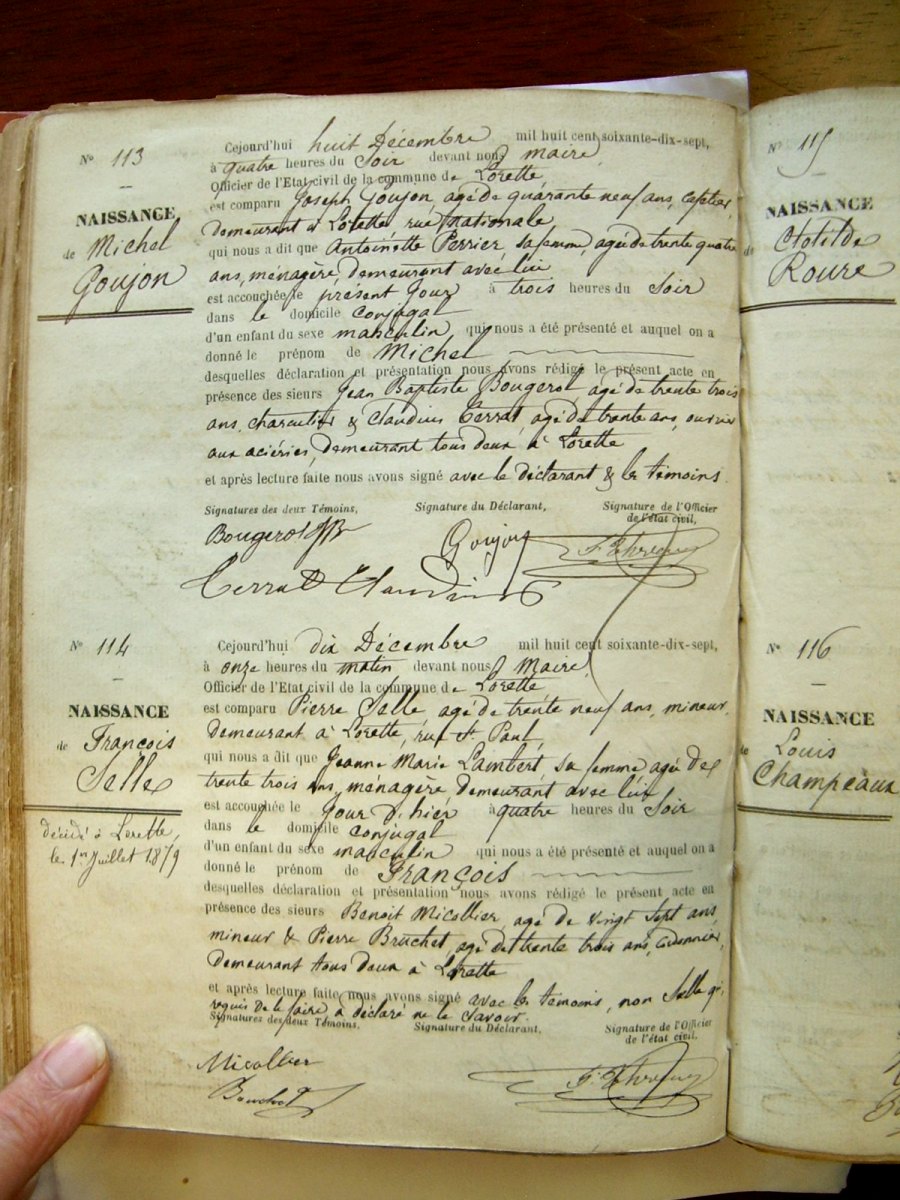 N° 113
NAISSANCE
de Michel
Goujon
Cejourd'hui huit Décembre mil huit cent soixante-dix-sept,
à quatre heures du Soir devant nous maire
Officier de l'Etat civil de la commune de Lorette
est comparu Joseph Goujon, agé de quarante neuf ans, cafetier,
demeurant à Lorette, rue Nationale,
qui nous a dit que Antoinette Perrier, sa femme, agée de trente quatre
ans, ménagère, demeurant avec lui
est accouchée le présent jour à trois heures du Soir
dans le domicile conjugal
d'un enfant du sexe masculin, qui nous a été présenté et auquel on a
donné le prénom de Michel
desquelles déclaration et présentation nous avons rédigé le présent acte en
présence des sieurs Jean Baptiste Bougerol, agé de trente trois
ans, charcutier & Claudius Terrat, agé de trente ans, ouvrier
aux aciéries, demeurant tous deux à Lorette
et après lecture faite nous avons signé avec le déclarant & les témoins.
Signatures des deux Témoins, Signature du Déclarant, Signature de l'Officier
de l'état civil,
Bougerol JB Goujon
Terrat Claudius
N° 114
NAISSANCE
de François
Selle
décédé à Lorette,
le 1er Juillet 1879
Cejourd'hui dix Décembre mil huit cent soixante-dix-sept,
à onze heures du matin devant nous Maire
Officier de l'Etat civil de la commune de Lorette
est comparu Pierre Selle, agé de trente neuf ans, mineur,
demeurant à Lorette, rue St. Paul,
qui nous a dit que Jeanne Marie Lambert, sa femme agée de
trente trois ans, ménagère demeurant avec lui
est accouchée le jour d'hier à quatre heures du Soir
dans le domicile conjugal
d'un enfant du sexe masculin qui nous a été présenté et auquel on a
donné le prénom de François
desquelles déclaration et présentation nous avons rédigé le présent acte en
présence des sieurs Benoit Micollier, agé de vingt sept ans,
mineur & Pierre Bruchet, agé de trente trois ans,
demeurant tous deux à Lorette
et après lecture faite nous avons signé avec les témoins, non Selle qui
requis de le faire, a déclaré ne le savoir.
Signatures des deux Témoins. Signature du Déclarant, Signature de l'Officier
de l'état civil,
Micollier
Bruchet
N° 115
NAISSANCE
de Clotilde
Roure
N° 116
NAISSANCE
de Louis
Champeaux